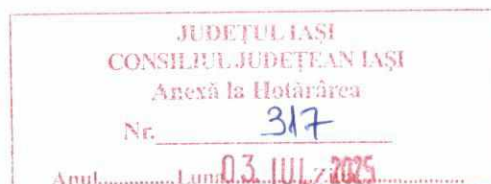 JUDEȚUL IAȘI
CONSILIUL JUDEȚEAN IAȘI
Anexă la Hotărârea
Nr. 317
Anul.............Luna 03. IUL. Ziua 2025.................